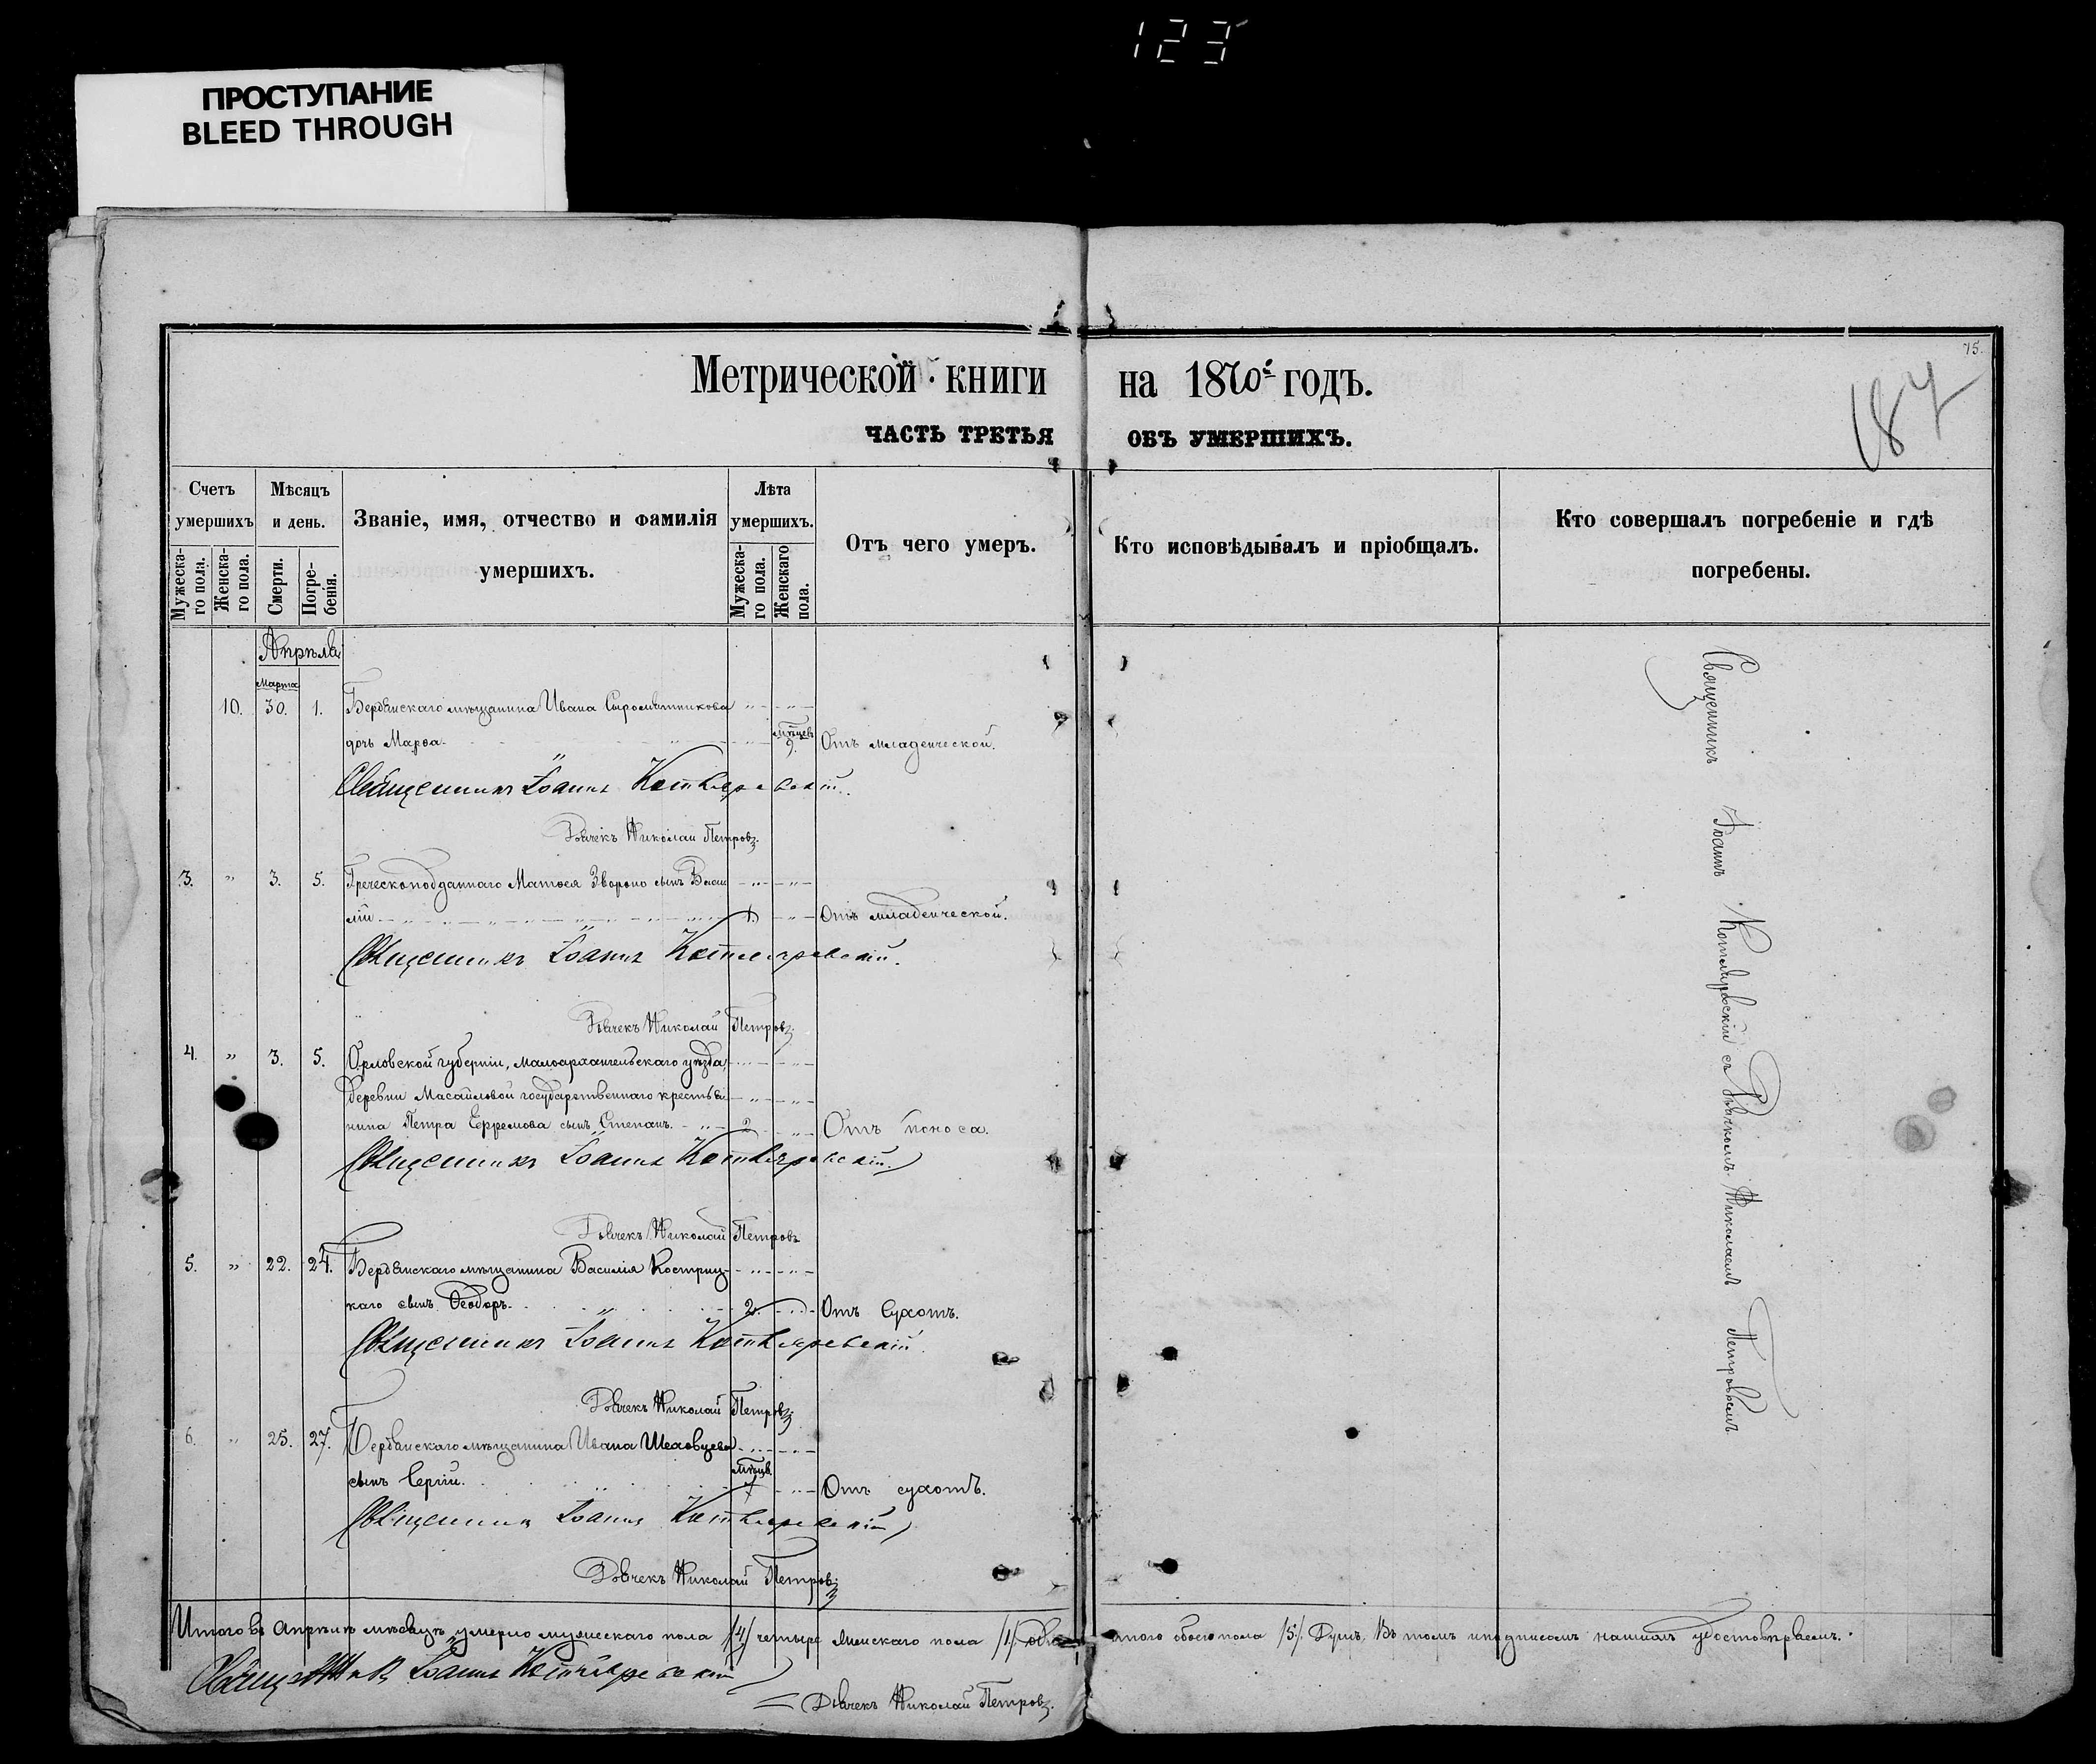 123
ПРОСТУПАНИЕ
BLEED THROUGH
75.
187
Метрической книги на 1870й годъ.
ЧАСТЬ ТРЕТЬЯ ОБЪ УМЕРШИХЪ.
Счетъ умершихъ
Мѣсяцъ и день.
Званіе, имя, отчество и фамилія умершихъ.
Лѣта умершихъ.
Отъ чего умеръ.
Кто исповѣдывалъ и пріобщалъ.
Кто совершалъ погребеніе и гдѣ погребены.
Мужеска-го пола.
Женска-го пола.
Смерти.
Погре-бенія.
Мужеска-го пола.
Женскаго пола.
Апрѣля
Марта
10. 30. 1. Бердянскаго мѣщанина Ивана Сыромятникова
дочь Марѳа. мѣсяцев 9. Отъ младенческой.
Священникъ Іоаннъ Котляревскій.
Дьячекъ Николай Петровъ.
3. " 3. 5. Греческоподданнаго Матѳея Звороно сынъ Васи
лій 1. Отъ младенческой.
Священникъ Іоаннъ Котляревскій.
Дьячекъ Николай Петровъ.
4. " 3. 5. Орловской губерніи, малоархангельскаго уѣзда,
деревни государственнаго крестья
нина Петра Ефремова сынъ Степанъ. 2 Отъ поноса.
Священникъ Іоаннъ Котляревскій
Дьячекъ Николай Петровъ
5. " 22. 24. Бердянскаго мѣщанина Василія Костриц
каго сынъ Ѳеодоръ. 2. Отъ Сухотъ.
Священникъ Іоаннъ Котляревскій.
Дьячекъ Николай Петровъ.
6. " 25. 27. Бердянскаго мѣщанина Ивана Шеховцева
сынъ Сергій. 7 Отъ сухотъ.
Священникъ Іоаннъ Котляревскій
Дьячекъ Николай Петровъ
Итого въ Апрѣлѣ мѣсяцѣ умерло мужескаго пола /4/ четыре женскаго пола /1/ одна итого обоего пола /5/ Душъ. Въ томъ и подписомъ нашимъ удостовѣряемъ.
Священникъ Іоаннъ Котляревскій
Дьячекъ Николай Петровъ.
Священникъ Іоаннъ Котляревскій съ Дьячкомъ Николаемъ Петровымъ